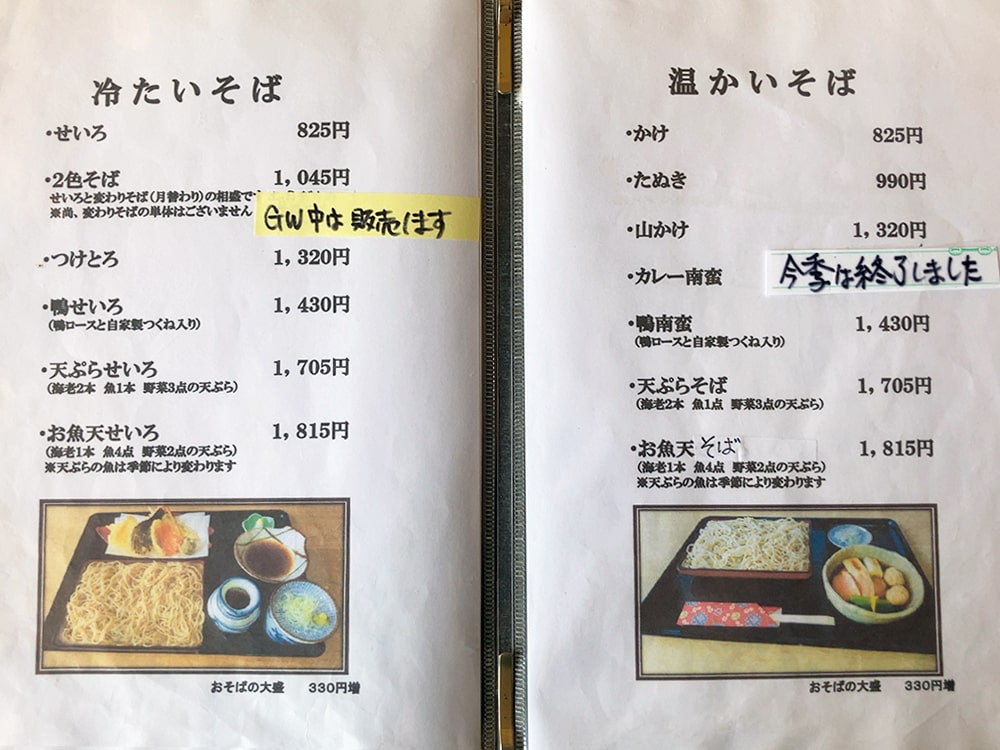 冷たいそば
・せいろ 825円
・2色そば 1,045円
せいろと変わりそば(月替わり)の相盛で
※尚、変わりそばの単体はございません
GW中は販売します
・つけとろ 1,320円
・鴨せいろ 1,430円
(鴨ロースと自家製つくね入り)
・天ぷらせいろ 1,705円
(海老2本 魚1本 野菜3点の天ぷら)
・お魚天せいろ 1,815円
(海老1本 魚4点 野菜2点の天ぷら)
※天ぷらの魚は季節により変わります
おそばの大盛 330円増
温かいそば
・かけ 825円
・たぬき 990円
・山かけ 1,320円
・カレー南蛮 今季は終了しました
・鴨南蛮 1,430円
(鴨ロースと自家製つくね入り)
・天ぷらそば 1,705円
(海老2本 魚1点 野菜3点の天ぷら)
・お魚天そば 1,815円
(海老1本 魚4点 野菜2点の天ぷら)
※天ぷらの魚は季節により変わります
おそばの大盛 330円増